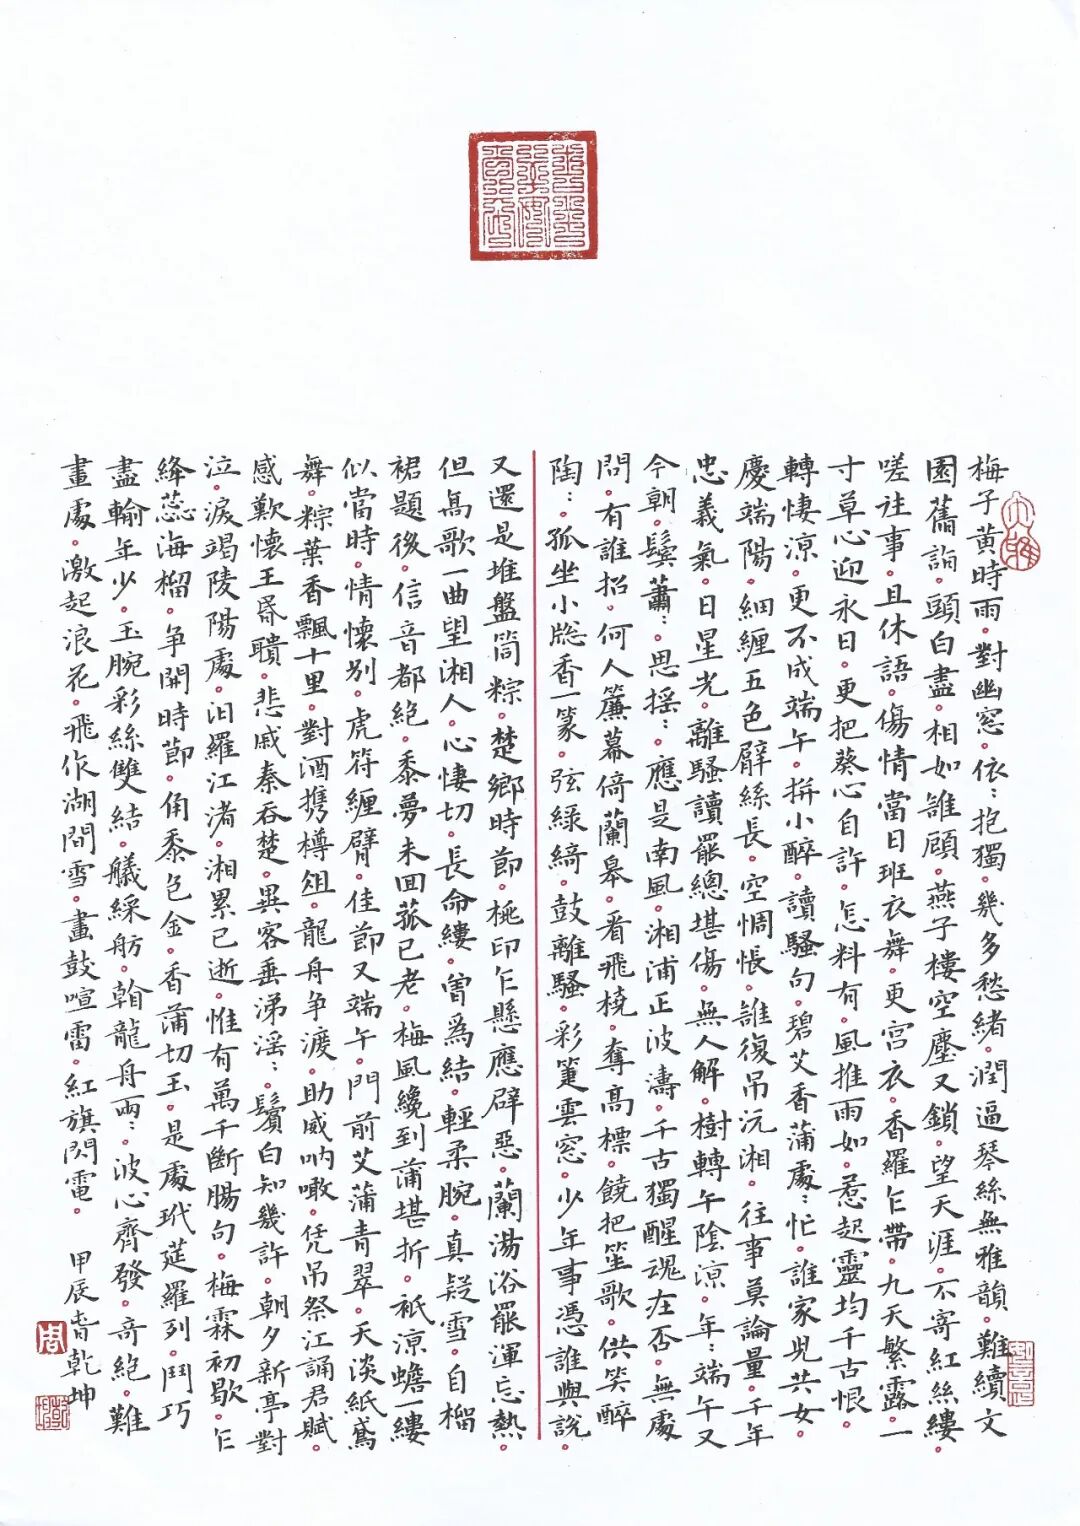 梅子黃時雨。對幽窓。依〻抱獨。幾多愁緒。潤逼琴絲無雅韻。難續文
園舊詢。頭白盡。相如誰顧。燕子樓空塵又鎖。望天涯。不寄紅絲縷。
嗟往事。且休語。傷情當日班衣舞。更宮衣。香羅乍帶。九天繁露。一
寸草心迎永日。更把葵心自許。怎料有。風推雨如。惹起靈均千古恨。
轉悽涼。更不成端午。拚小醉。讀騷句。碧艾香蒲處〻忙。誰家兒共女。
慶端陽。細纏五色臂絲長。空惆悵。誰復吊沅湘。往事莫論量。千年
忠義氣。日星光。離騷讀罷總堪傷。無人解。樹轉午陰涼。年〻端午又
今朝。鬢蕭〻。思搖〻。應是南風。湘浦正波濤。千古獨醒魂在否。無處
問。有誰招。何人簾幕倚蘭皋。看飛橈。奪高標。饒把笙歌。供笑醉
陶〻。孤坐小窓香一篆。弦綠綺。鼓離騷。彩篁雲窓。少年事憑誰與說。
又還是堆盤筒粽。楚鄉時節。桃印乍懸應辟惡。蘭湯浴罷渾忘熱。
但高歌一曲望湘人。心悽切。長命縷。曾為結。輕柔腕。真疑雪。自榴
裙題後。信音都絕。黍夢未回菰已老。梅風纔到蒲堪折。祇涼蟾一縷
似當時。情懷別。虎符纏臂。佳節又端午。門前艾蒲青翠。天淡紙鳶
舞。粽葉香飄十里。對酒攜樽俎。龍舟爭渡。助威吶喊。憑吊祭江誦君賦。
感歎懷王昏聵。悲戚秦吞楚。異客垂涕淫〻。鬢白知幾許。朝夕新亭對
泣。淚竭陵陽處。汨羅江渚。湘累已逝。惟有萬千斷腸句。梅霖初歇。乍
絳蕊海榴。爭開時節。角黍包金。香蒲切玉。是處玳筵羅列。鬥巧
盡輸年少。玉腕彩絲雙結。艤綵舫。龍舟兩〻。波心齊發。奇絕。難
畫處。激起浪花。飛作湖間雪。畫鼓喧雷。紅旗閃電。
甲辰春乾坤